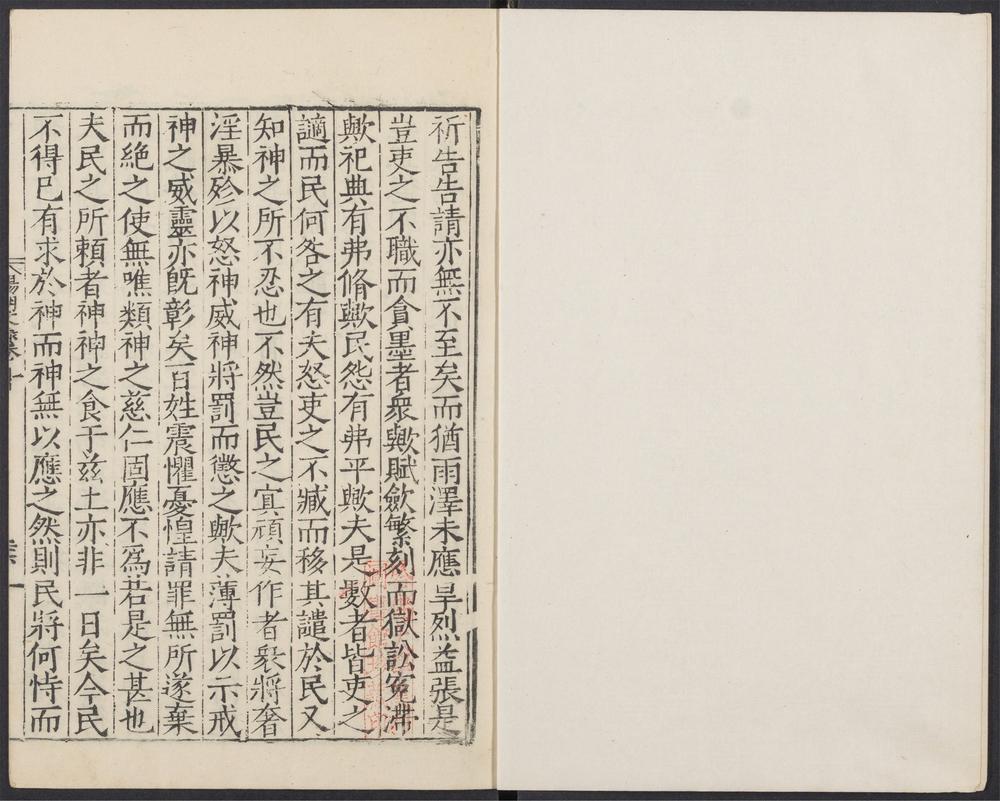 祈告告請亦無不至矣而猶雨澤未應旱烈益張是
豈吏之不職而貪墨者衆歟賦斂繁刻而獄訟寃滯
歟祀典有弗脩歟民怨有弗平歟夫是數者皆吏之
謫而民何咎之有夫怒吏之不臧而移其譴於民又
知神之所不忍也不然豈民之寘頑妄作者衆將奢
淫暴殄以怒神威神將罰而懲之歟夫薄罰以示戒
神之威靈亦旣彰矣百姓震懼憂惶請罪無所遂棄
而絶之使無噍類神之慈仁固應不爲若是之甚也
夫民之所賴者神神之食于兹土亦非一日矣今民
不得已有求於神而神無以應之然則民將何恃而